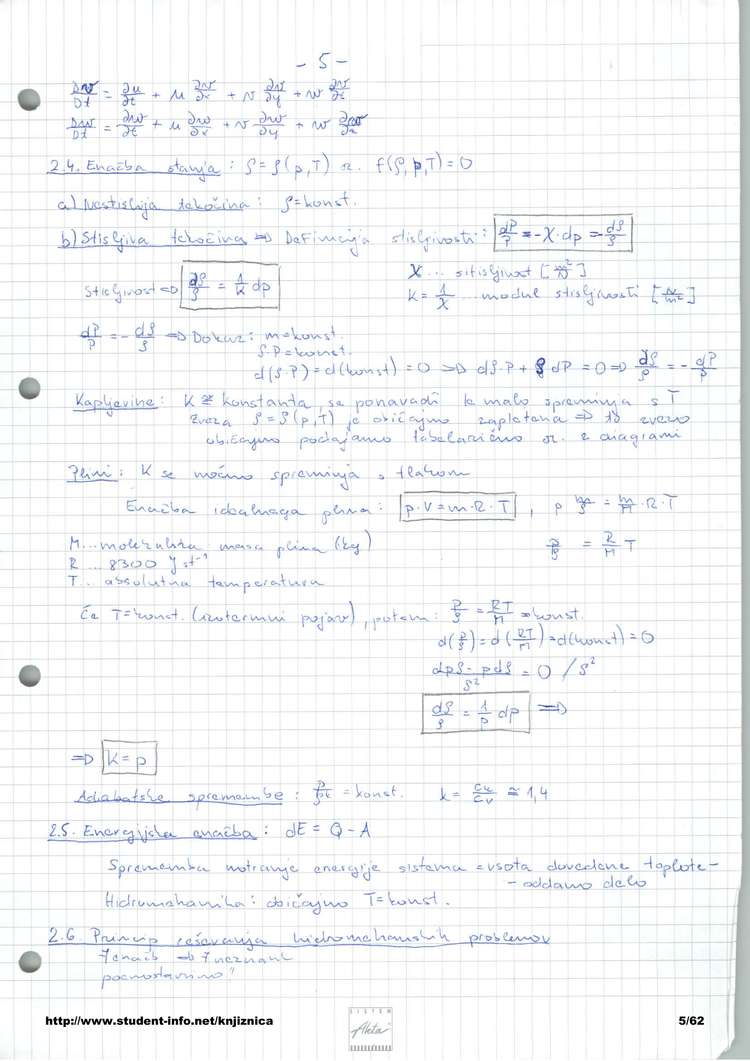 - 5 -
Dv/Dt = ∂u/∂t + u ∂v/∂x + v ∂v/∂y + w ∂v/∂z
Dw/Dt = ∂w/∂t + u ∂w/∂x + v ∂w/∂y + w ∂w/∂z
2.4. Enačba stanja : ρ = ρ(p,T) oz. f(ρ,p,T) = 0
a) Nestisljiva tekočina : ρ = konst.
b) Stisljiva tekočina => Definicija stisljivosti : dP/P = -χ·dp = -dρ/ρ
Stisljivost => dρ/ρ = 1/K dp
χ ... stisljivost [m²/N]
K = 1/χ ... modul stisljivosti [N/m²]
dP/P = - dρ/ρ => Dokaz : m = konst.
ρ·P = konst.
d(ρ·P) = d(konst) = 0 => dρ·P + ρ dP = 0 => dρ/ρ = - dP/P
Kapljevine : K ≅ konstanta, se ponavadi le malo spreminja s T
zveza ρ = ρ(p,T) je običajno zapletena => to zvezo
običajno podajamo tabelarično oz. z diagrami
Plini : K se močno spreminja s tlakom
Enačba idealnega plina : p·V = m·R·T , p m/ρ = m/M ·R·T
M ... molekulska masa plina (kg)
R ... 8300 J st⁻¹
p/ρ = R/M T
T .. absolutna temperatura
Če T = konst. (izotermni pojav), potem : p/ρ = RT/M = konst.
d(p/ρ) = d(RT/M) = d(konst) = 0
dpρ - pdρ/ρ² = 0 / ρ²
dρ/ρ = 1/p dp =>
=> K = p
Adiabatske spremembe : p/ρᵏ = konst. k = cₚ/cᵥ ≅ 1,4
2.5. Energijska enačba : dE = Q - A
Sprememba notranje energije sistema = vsota dovedene toplote -
- oddamo delo
Hidromehanika : običajno T = konst.
2.6. Princip reševanja hidromehanskih problemov
7 enačb -> 7 neznank
poenostavimo
http://www.student-info.net/knjiznica
SISTEM
Aleta
5/62